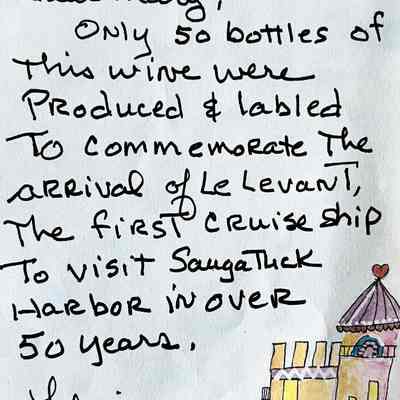 Only 50 bottles of
This wine were
Produced & labled
To commemorate The
arrival of Le Levant,
The first cruise ship
To visit Saugatuck
Harbor in over
50 years.